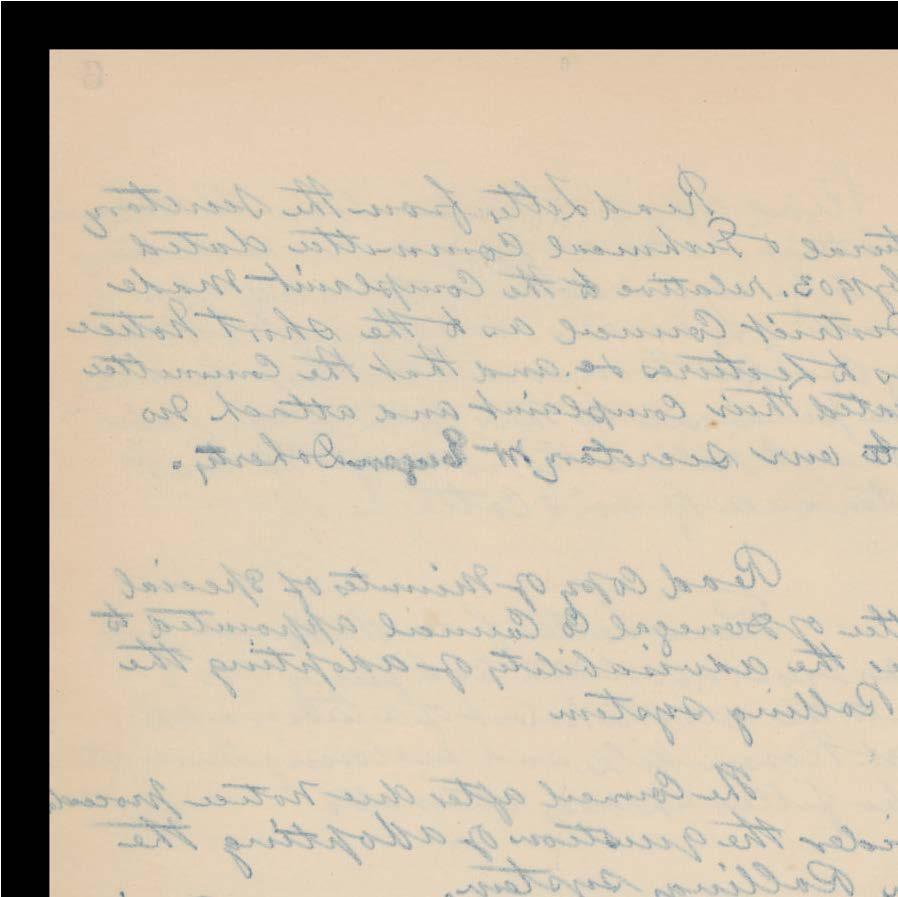 6
Read Letter from the Secretary
tural & Technical Committee dated
1903. relative to the Complaint made
istrict Council as to the short notice
to Lectures &c. and that the Committee
this Complaint and attach no
to our Secretary Mr Eugene Doherty.
Read Copy of Minute of Special
ttee of Donegal Co Council appointed to
the advisability of adopting the
Rolling system
The Council after due notice proceed
ider the question of adopting the
Rolling system.